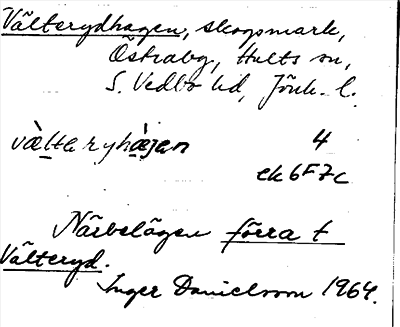 Välterydhagen, skogsmark,
Östraby, Hults sn,
S. Vedbo hd, Jönk. l.
4
ek 6F7c
Närbelägen förra t
Välteryd.
Inger Danielsson 1964.